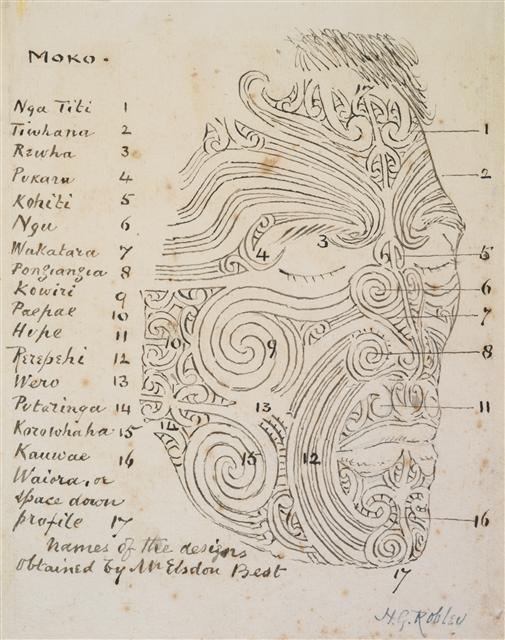 MOKO.
Nga Titi 1
Tiwhana 2
Rewha 3
Pukaru 4
Kohiti 5
Ngu 6
Wakatara 7
Pongiangia 8
Kowiri 9
Paepae 10
Hupe 11
Rerepehi 12
Wero 13
Putaringa 14
Korowhaha 15
Kauwae 16
Waiora, or
space down
profile 17
names of the designs
obtained by Mr Elsdon Best
1
2
3
4
5
6
6
7
8
9
10
11
12
13
15
16
17
H.G. Robley